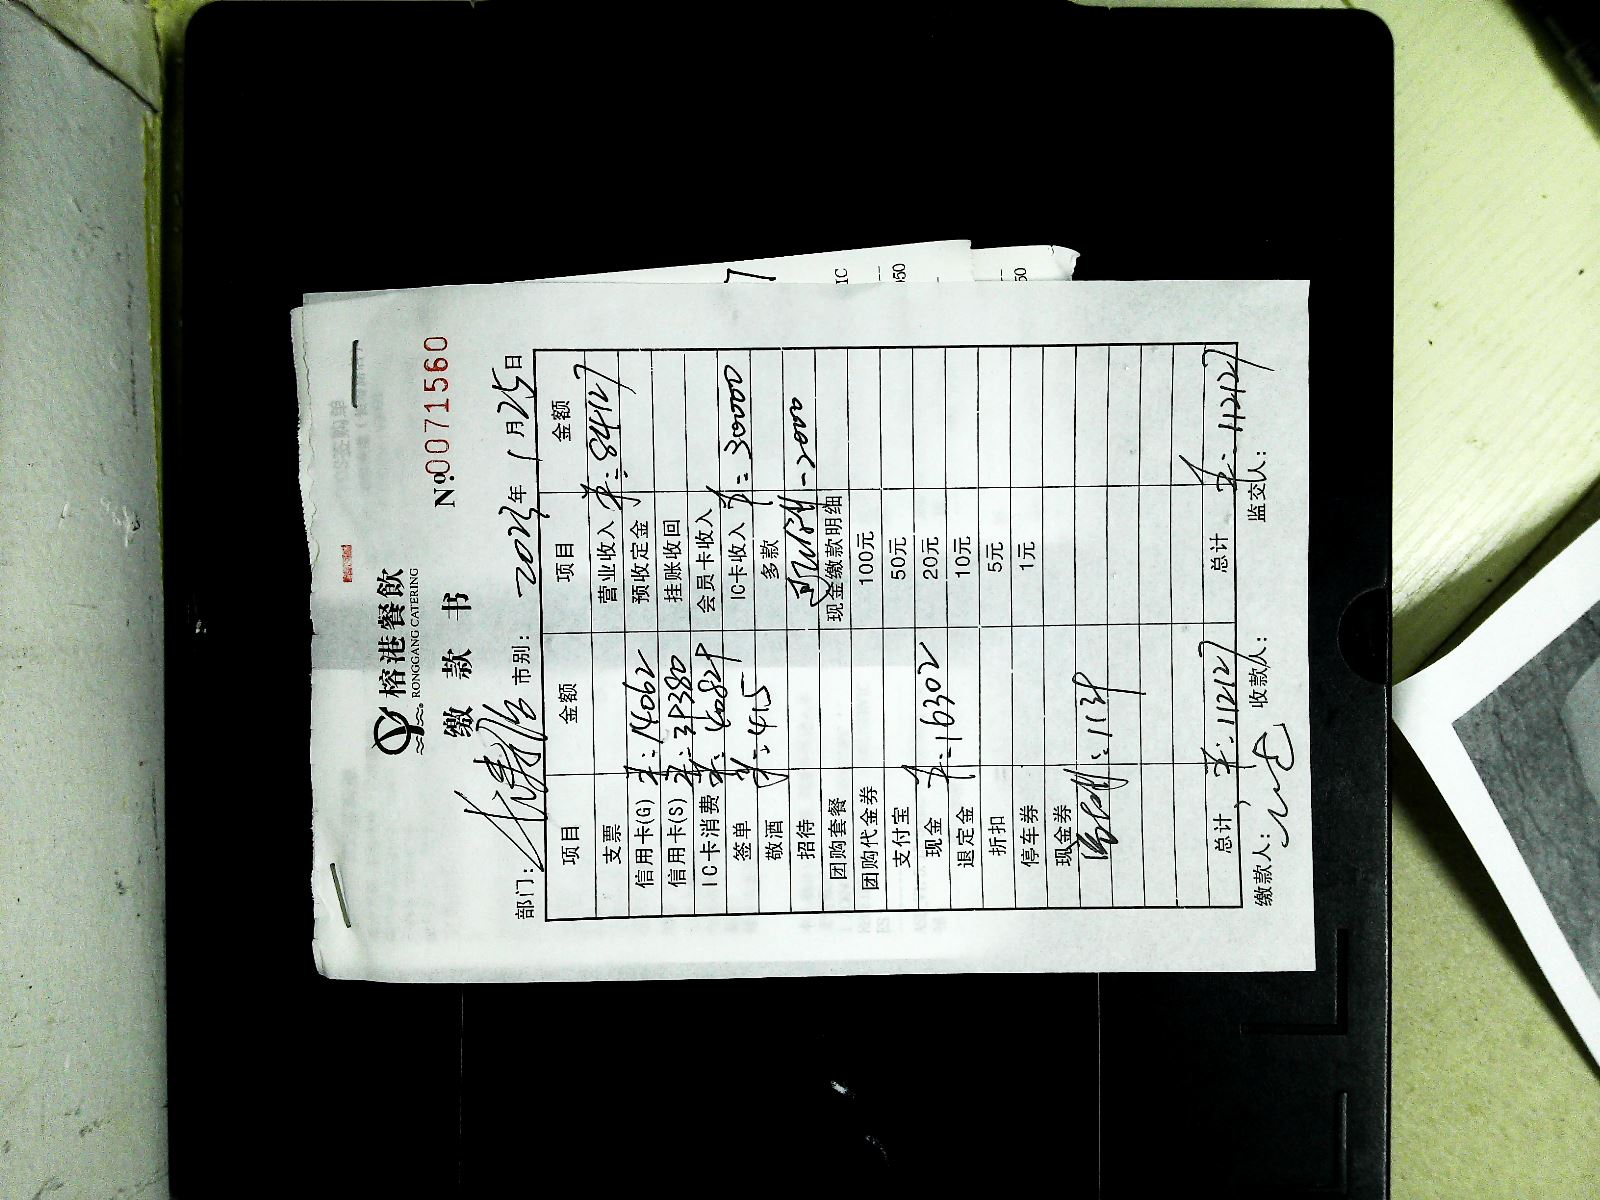 榕港餐飲
RONGGANG CATERING
缴 款 书
№0071560
部门: 市别: 2023年 1月25日
项目 金额 项目 金额
支票 营业收入 ¥:84127
信用卡(G) ¥:14062 预收定金
信用卡(S) 挂账收回
IC卡消费 会员卡收入
签单 ¥:415 IC卡收入 ¥:30000
敬酒 多款
招待 -2000
团购套餐 现金缴款明细
团购代金券 100元
支付宝 50元
现金 ¥:16302 20元
退定金 10元
折扣 5元
停车券 1元
现金券
:1139
总计 ¥:112127 总计 ¥:112127
缴款人: 收款人: 监交人:
7
IC
50
50